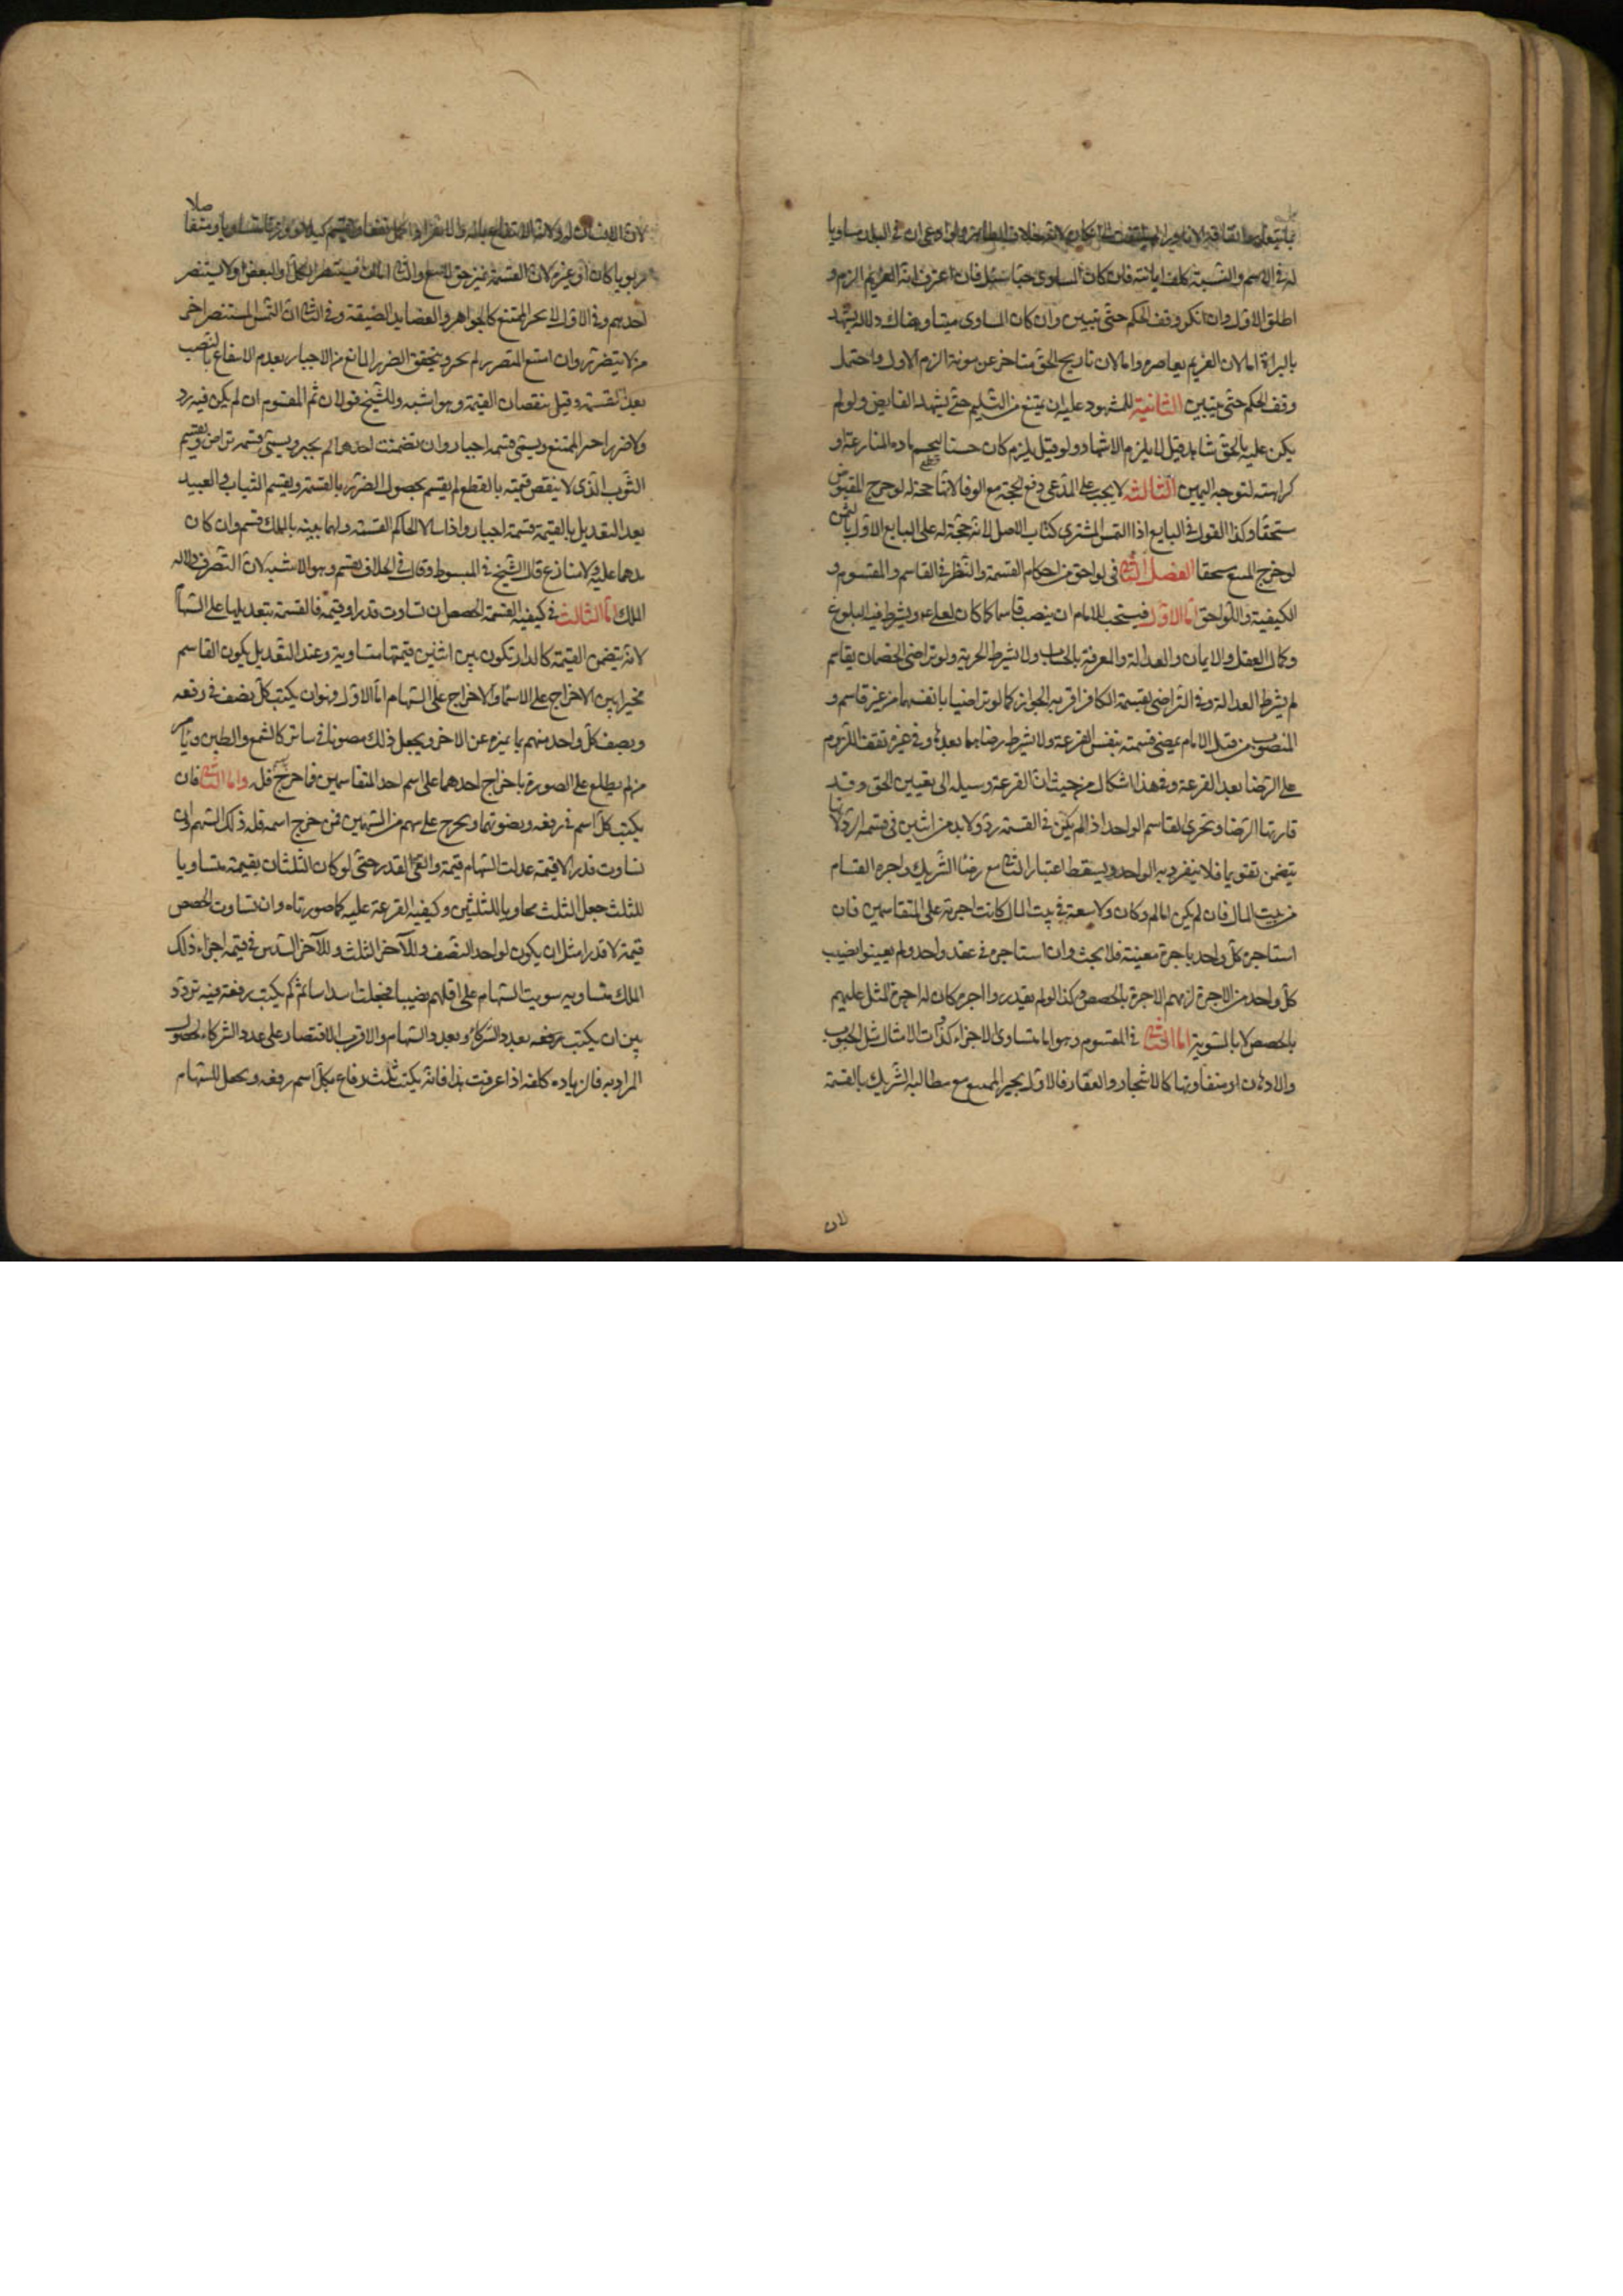 له في الاسم والنسبة كلف ابانته فان كان المساوي حيا سئل فان اعترف انه الغريم الزم و
اطلق الاول وان انكر وقف الحكم حتى يتبين وان كان المساوي ميتا وهناك دلالة يشهد
بالبراة اما لان الغريم يعاصره واما لان تاريخ الحق متاخر عن موته الزم الاول واحتمل
وقف الحكم حتى يتبين الثانية للمشهود عليه ان يمتنع من التسليم حتى يشهد القابض ولو لم
يكن عليه بالحق شاهد قيل لا يلزم الاشهاد ولو قيل يلزم كان حسنا حسما لمادة المنازعة او
كراهته لتوجه اليمين الثالثة لا يجب على المدعي دفع الحجة مع الوفا لانها حجة له لو خرج المقبوض
مستحقا وكذا القول في البايع اذا التمس المشتري كتاب الاصل لانه حجة له على البايع الاول بالثمن
لو خرج المبيع مستحقا الفصل الثاني في لواحق من احكام القسمة والنظر في القاسم والمقسوم و
الكيفية واللواحق اما الاول فيستحب للامام ان ينصب قاسما كما كان لعلي ع ويشترط فيه البلوغ
وكمال العقل والايمان والعدالة والمعرفة بالحساب ولا يشترط الحرية ولو تراضى الخصمان بقاسم
لم يشترط العدالة وفي التراضي بقسمة الكافر اقربه الجواز كما لو تراضيا بانفسهما من غير قاسم و
المنصوب من قبل الامام يمضي قسمته بنفس القرعة ولا يشترط رضاهما بعدها وفي غيره يقف اللزوم
على الرضا بعد القرعة وفي هذا اشكال من حيث ان القرعة وسيلة الى تعيين الحق وقد
قارنها الرضا ويجزي القاسم الواحد اذا لم يكن في القسمة رد ولابد من اثنين في قسمة الرد لانها
يتضمن تقويما فلا ينفرد به الواحد ويسقط اعتبار الثاني مع رضا الشريك واجرة القسام
من بيت المال فان لم يكن امام او كان ولا سعة في بيت المال كانت اجرته على المتقاسمين فان
استاجره كل واحد باجرة معينة فلا بحث وان استاجروه في عقد واحد ولم يعينوا نصيب
كل واحد من الاجرة لزمهم الاجرة بالحصص وكذا لو لم يقدروا اجرة كان له اجرة المثل عليهم
بالحصص لا بالسوية اما الثاني في المقسوم وهو اما متساوي الاجزاء كذوات الامثال مثل الحبوب
والادهان او متفاوتها كالاشجار والعقار فالاول يجبر الممتنع مع مطالبة الشريك بالقسمة
لان
ربويا كان او غيره لان القسمة تميز حق لا بيع والثاني اما ان يستضر الكل او البعض او لا يستضر
احدهم وفي الاول لا يجبر الممتنع كالجواهر والعضايد الضيقة وفي الثاني ان التمس المستضر اجبر
من لا يتضرر وان امتنع المتضرر لم يجبر ويتحقق الضرر المانع من الاجبار بعدم الانتفاع بالنصيب
بعد القسمة وقيل بنقصان القيمة وهو اشبه وللشيخ قولان ثم المقسوم ان لم يكن فيه رد
ولا ضرر اجبر الممتنع ويسمى قسمة اجبار وان تضمنت احدهما لم يجبر ويسمى قسمة تراض ويقسم
الثوب الذي لا ينقص قيمته بالقطع لم يقسم لحصول الضرر بالقسمة ويقسم الثياب والعبيد
بعد التعديل بالقيمة قسمة اجبار واذا سالا الحاكم القسمة ولهما بينة بالملك قسم وان كان
يدهما عليه ولا منازع قال الشيخ في المبسوط وقال في الخلاف يقسم وهو الاشبه لان التصرف دلالة
الملك اما الثالث في كيفية القسمة الحصص ان تساوت قدرا وقيمة فالقسمة بتعديلها على السهام
لانه يتضمن القيمة كالدار تكون بين اثنين قيمتها متساوية وعند التعديل يكون القاسم
مخيرا بين الاخراج على الاسماء والاخراج على السهام اما الاول فهو ان يكتب كل نصف في رقعة
ويصف كل واحد منهم بما يميزه عن الاخر ويجعل ذلك مصونا في ساتر كالشمع والطين ويامر
من لم يطلع على الصورة باخراج احدهما على اسم احد المتقاسمين فما خرج فله واما الثاني فان
يكتب كل اسم في رقعة ويصونهما ويخرج على سهم من السهمين فمن خرج اسمه فله ذلك السهم وان
تساوت قدرا لا قيمة عدلت السهام قيمة والغي القدر حتى لو كان الثلثان بقيمته متساويا
للثلث جعل الثلث محاويا للثلثين وكيفية القرعة عليه كما صورناه وان تساوت الحصص
قيمة لا قدرا مثل ان يكون لواحد النصف وللآخر الثلث وللآخر السدس في قيمة اجزاء ذلك
الملك متساوية سويت السهام على اقلهم نصيبا فجعلت اسداسا ثم كم يكتب رقعة فيه تردد
بين ان يكتب رقعه بعدد الشركاء وبعدد السهام والاقرب الاقتصار على عدد الشركاء لحصول
المراد به فالزيادة كلفة اذا عرفت هذا فانه يكتب ثلث رقاع بكل اسم رقعة ويجعل للسهام